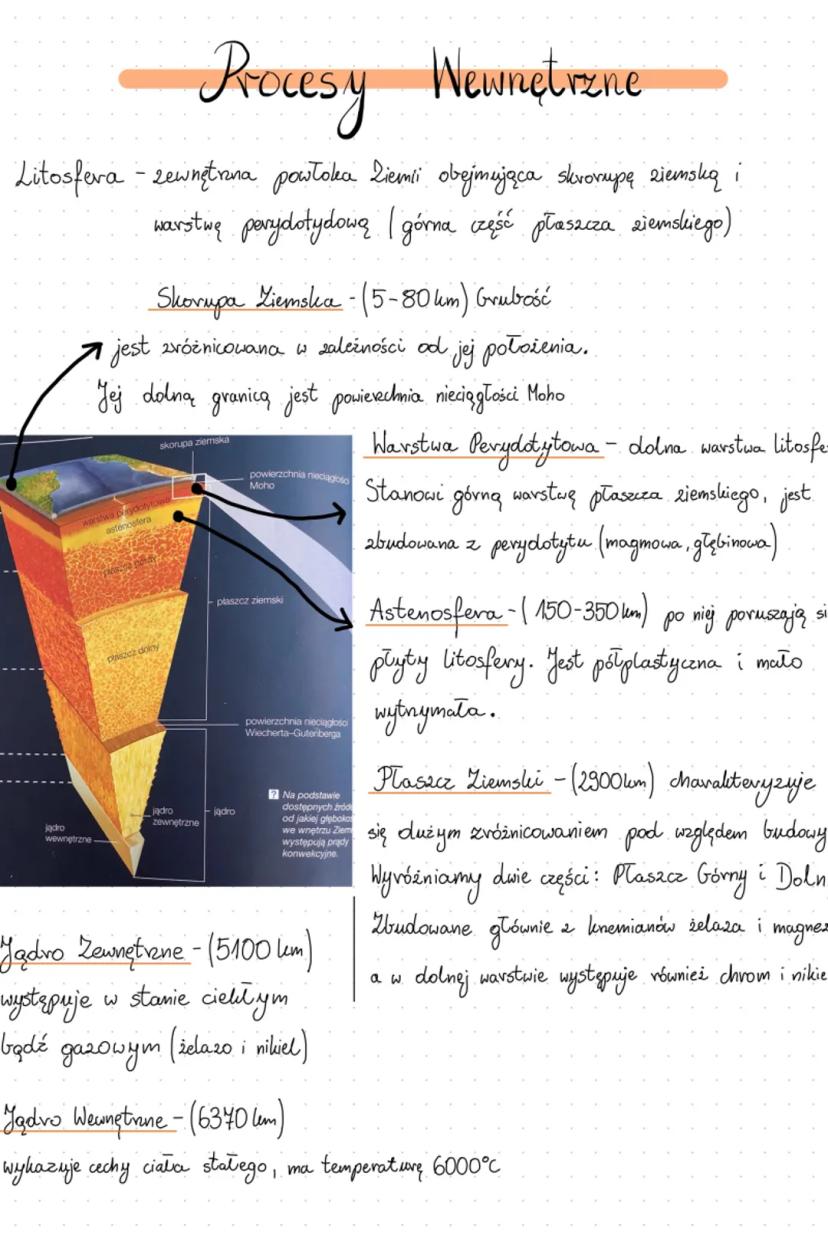 Procesy Wewnętrzne
Litosfera - zewnętrzna powłoka Ziemi obejmująca skorupę ziemską i
warstwę perydotydową (górna część płaszcza ziemskiego)
Skorupa Ziemska - (5-80km) Grubość
jest zróżnicowana w zależności od jej położenia.
Jej dolną granicą jest powierzchnia nieciągłości Moho
skorupa ziemska
powierzchnia nieciągłości
Moho
warstwa perydotytowa
astenosfera
płaszcz górny
płaszcz ziemski
płaszcz dolny
powierzchnia nieciągłości
Wiecherta–Gutenberga
jądro
zewnętrzne
jądro
jądro
wewnętrzne
? Na podstawie
dostępnych źróde
od jakiej głębokoś
we wnętrzu Ziem
występują prądy
konwekcyjne.
Warstwa Perydotytowa - dolna warstwa litosfe
Stanowi górną warstwę płaszcza ziemskiego, jest
zbudowana z perydotytu (magmowa, głębinowa)
Astenosfera - (150-350km) po niej poruszają si
płyty litosfery. Jest półplastyczna i mało
wytrzymała.
Płaszcz Ziemski - (2900km) charakteryzuje
się dużym zróżnicowaniem pod względem budowy
Wyróżniamy dwie części: Płaszcz Górny i Doln
Zbudowane głównie z krzemianów żelaza i magnez
a w dolnej warstwie występuje również chrom i nikie
Jądro Zewnętrzne - (5100 km)
występuje w stanie ciekłym
bądź gazowym (żelazo i nikiel)
Jądro Wewnętrzne - (6370 km)
wykazuje cechy ciała stałego, ma temperaturę 6000°C